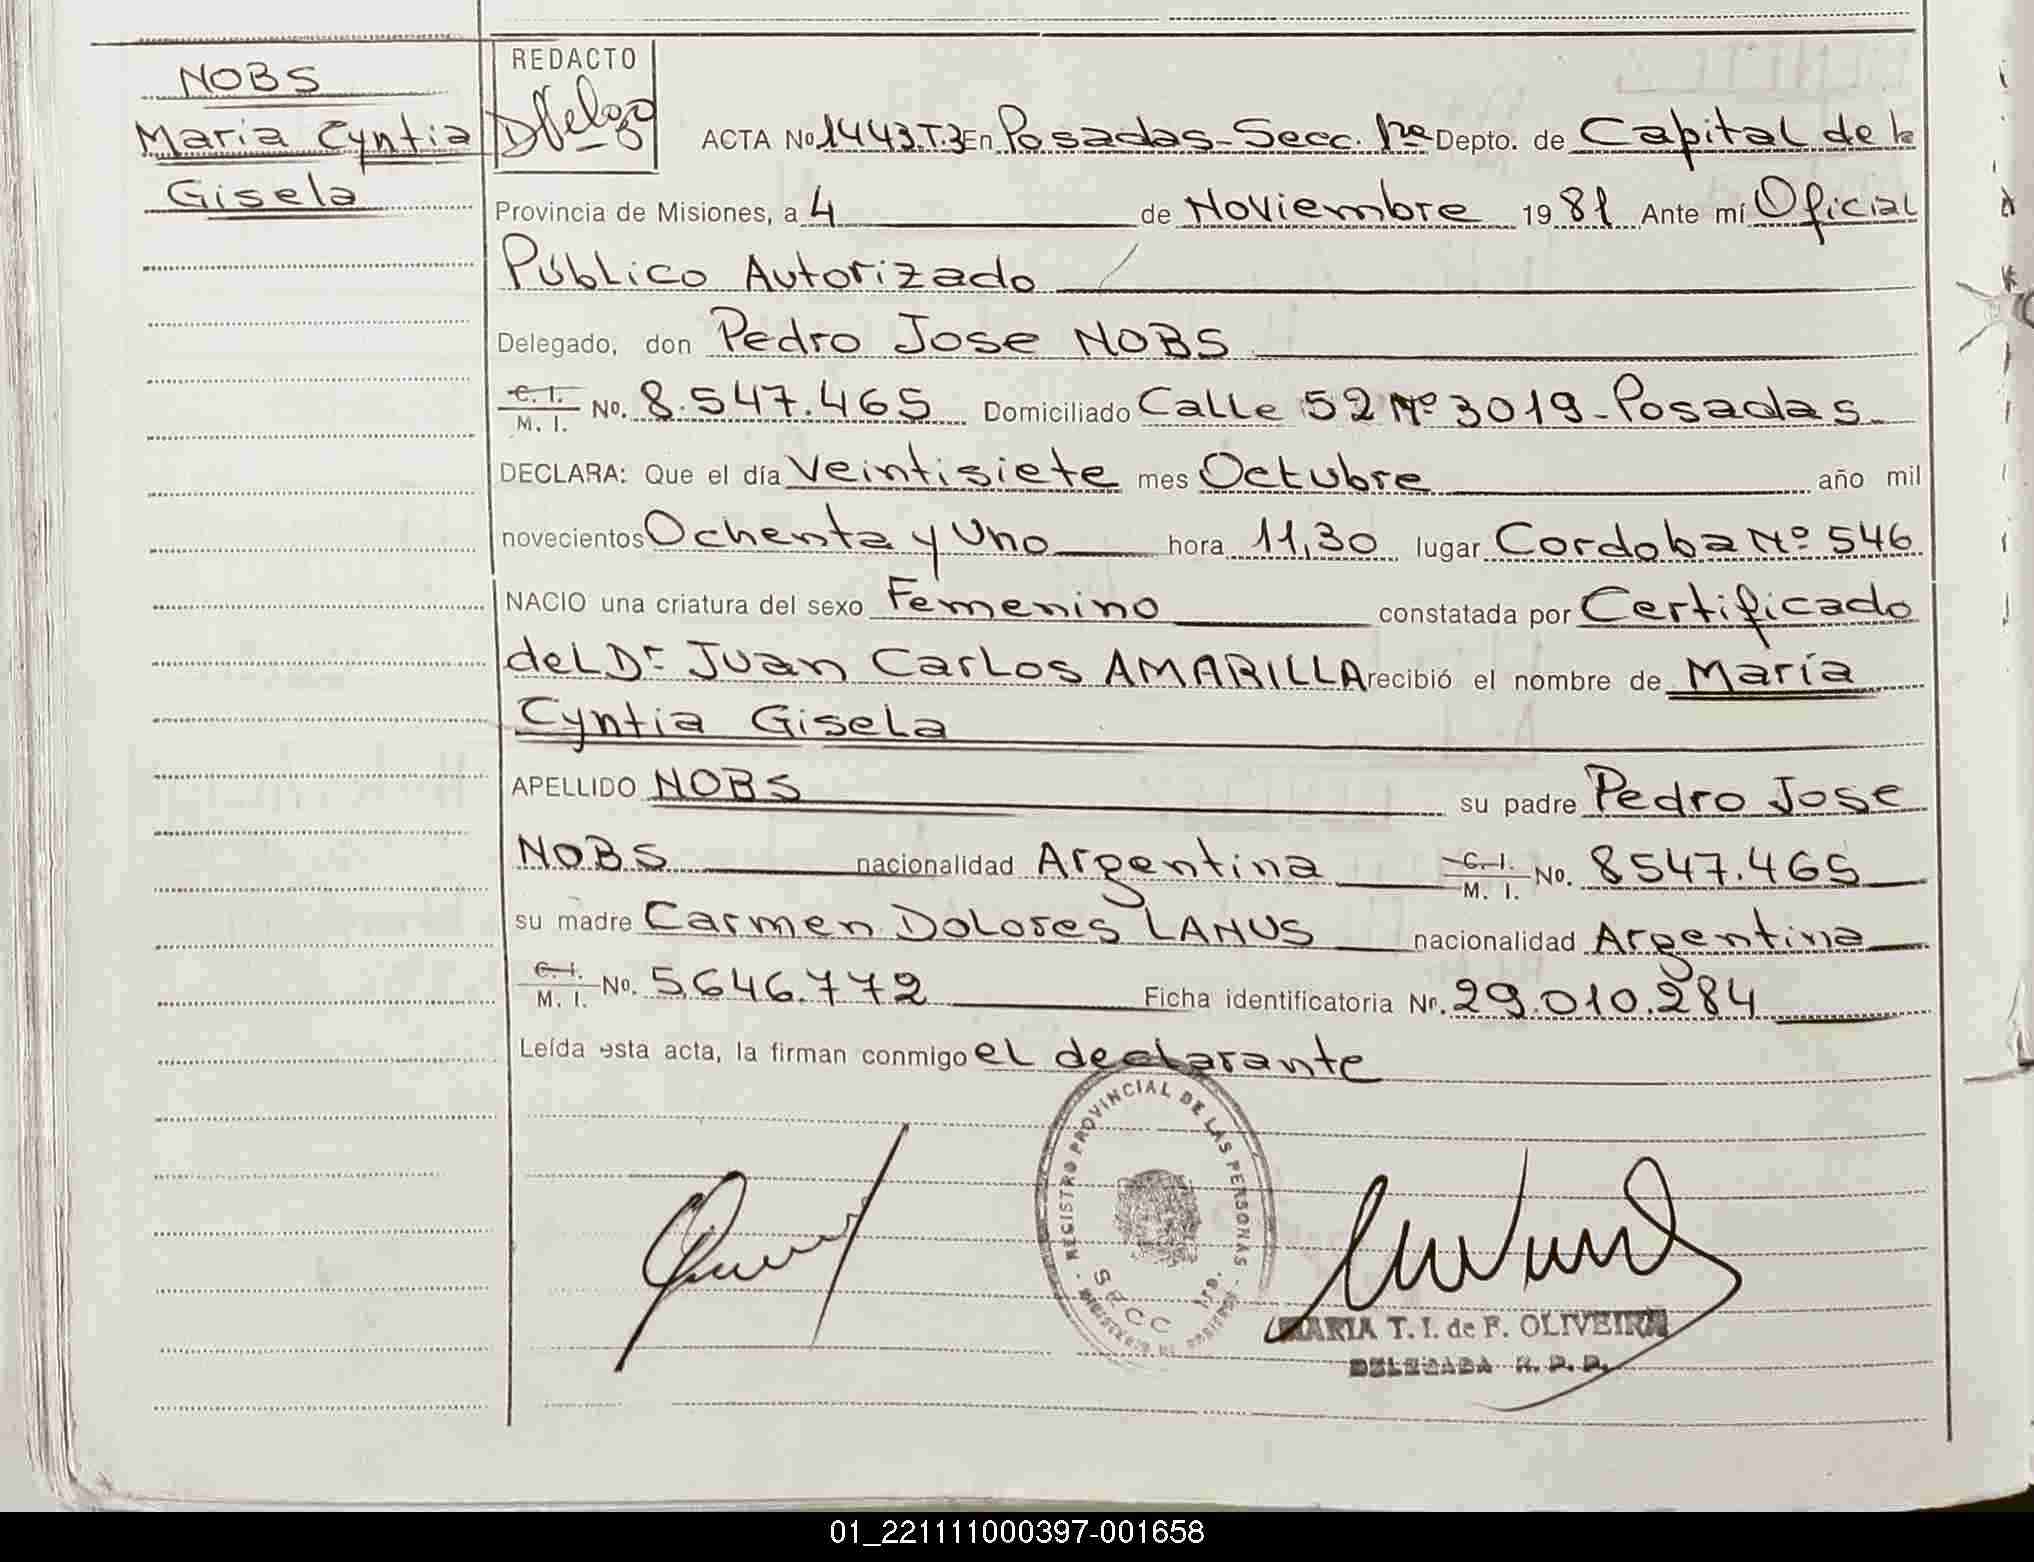 NOBS
María Cyntia
Gisela
REDACTO
ACTA No 1443.T.3 En Posadas-Secc. 1ra Depto. de Capital de la
Provincia de Misiones, a 4 de Noviembre 1981 Ante mí Oficial
Público Autorizado
Delegado, don Pedro Jose NOBS
C. I.
M. I. No. 8.547.465 Domiciliado Calle 52 Nº 3019-Posadas
DECLARA: Que el día Veintisiete mes Octubre año mil
novecientos Ochenta y Uno hora 11,30 lugar Cordoba Nº 546
NACIO una criatura del sexo Femenino constatada por Certificado
del Dr Juan Carlos AMARILLA recibió el nombre de María
Cyntia Gisela
APELLIDO NOBS su padre Pedro Jose
NOBS nacionalidad Argentina C. I.
M. I. No. 8547.465
su madre Carmen Dolores LANUS nacionalidad Argentina
C. I.
M. I. No. 5.646.772 Ficha identificatoria No. 29.010.284
Leída esta acta, la firman conmigo el declarante
REGISTRO PROVINCIAL DE LAS PERSONAS
SECC 1ra.
MARIA T. I. de F. OLIVEIRA
DELEGADA R. P. P.
01_221111000397-001658